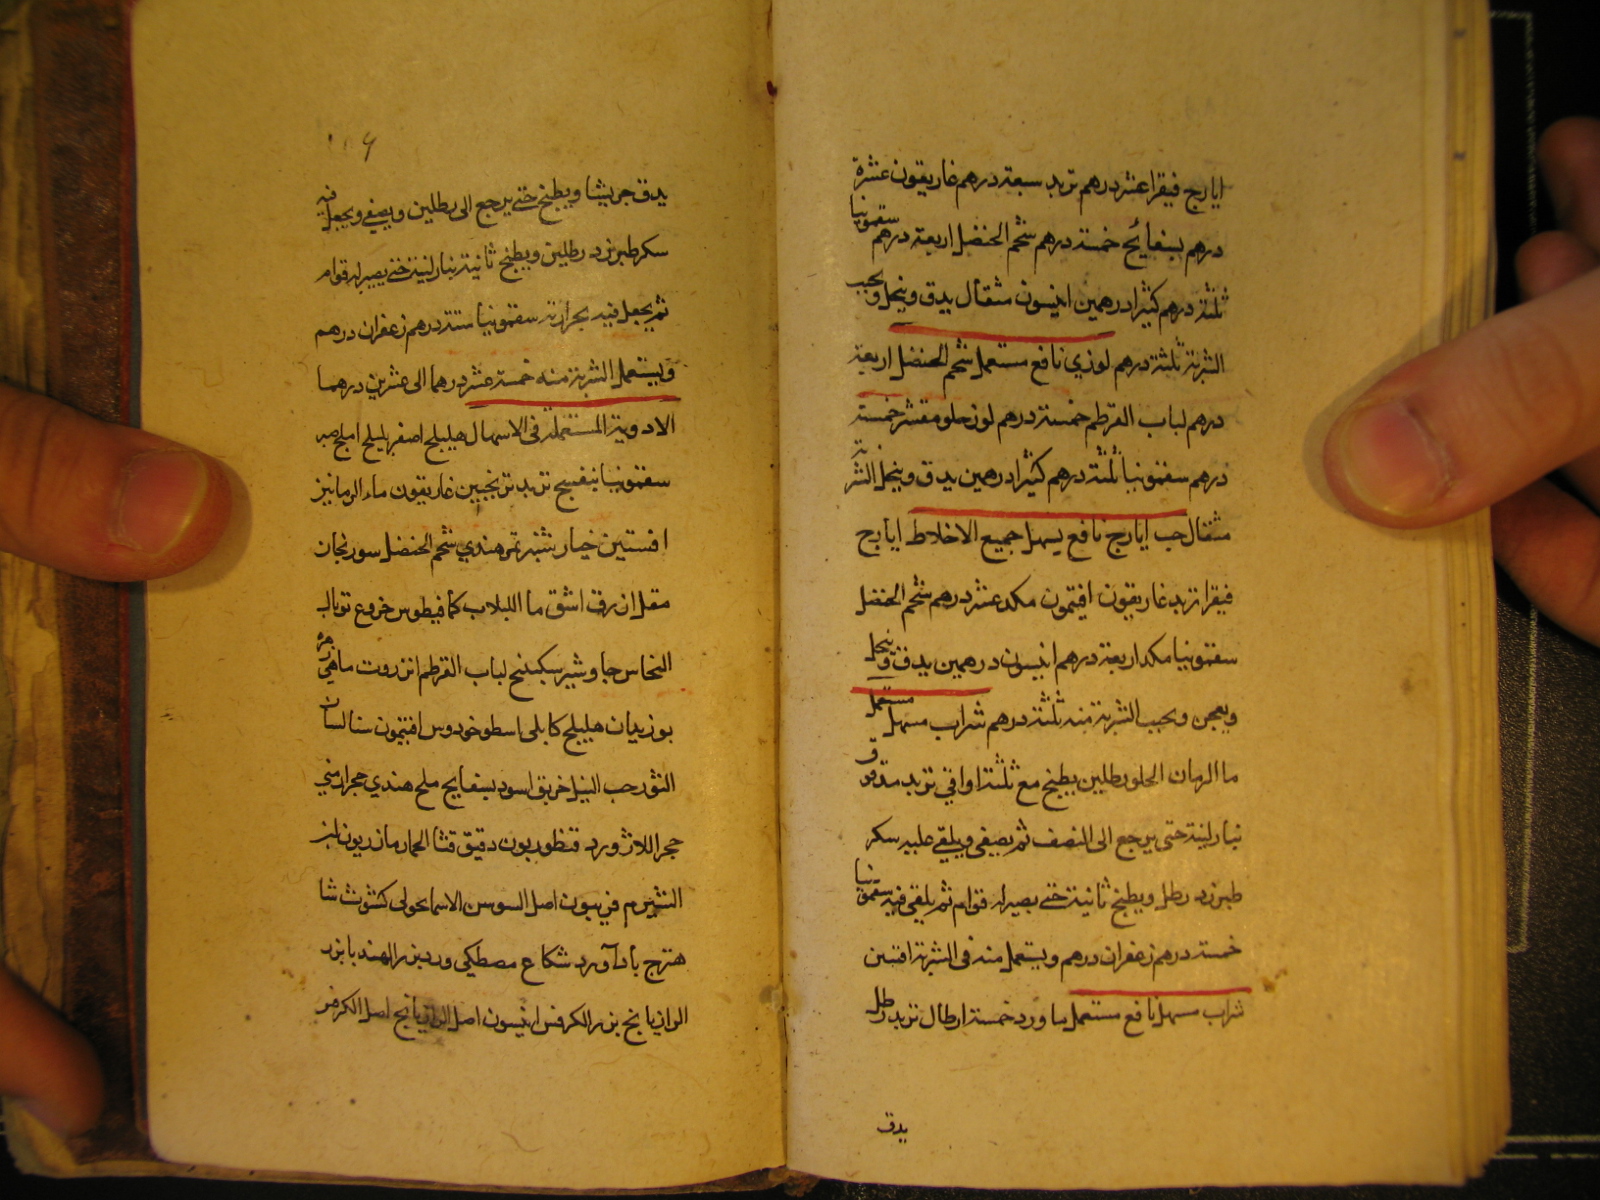 ايارج فيقرا عشر درهم تربد سبعة درهم غاريقون عشرة
درهم بسفايج خمسة درهم شحم الحنضل اربعة درهم سقمونيا
ثلثة درهم كثيرا درهمين انيسون مثقال يدق وينخل ويحبب
الشربة ثلثة درهم لوزي نافع مستعمل شحم الحنضل اربعة
درهم لباب القرطم خمسة درهم لوز حلو مقشر خمسة
درهم سقمونيا ثلثة درهم كثيرا درهمين يدق وينخل الشربة
مثقال حب ايارج نافع يسهل جميع الاخلاط ايارج
فيقرا تربد غاريقون افتمون مكد عشر درهم شحم الحنضل
سقمونيا مكد اربعة درهم انيسون درهمين يدق وينخل
ويعجن ويحبب الشربة منه ثلثة درهم شراب مسهل مستعمل
ما الرمان الحلو رطلين يطبخ مع ثلثة اواقي تربد مدقوق
بنار لينة حتى يرجع الى النصف ثم يصفى ويلقى عليه سكر
طبرزد رطل ويطبخ ثانية حتى يصير له قوام ثم يلقى فيه سقمونيا
خمسة درهم زعفران درهم ويستعمل منه فى الشربة اقتين
شراب مسهل نافع مستعمل ما ورد خمسة ارطال تربد رطل
يدق
يدق جريشا ويطبخ حتى يرجع الى رطلين ويصفى ويجعل فيه
سكر طبرزد رطلين ويطبخ ثانية بنار لينة حتى يصير له قوام
ثم يجعل فيه بحرارته سقمونيا ستة درهم زعفران درهم
ويستعمل الشربة منه خمسة عشر درهما الى عشرين درهما
الادوية المستعملة فى الاسهال هليلج اصفر بليلج املج صبر
سقمونيا بنفسج تربد ترنجبين غاريقون ماء الرمانيز
افسنتين خيار شنبر تمر هندي شحم الحنضل سورنجان
مقل ازرق اشق ما اللبلاب كمافيطوس خروع توبال
النحاس جاوشير سكبينج لباب القرطم انزروت ماهي زهره
بوزيدان هليلج كابلى اسطوخودوس افتمون سنا لسان
الثور حب النيل خربق اسود بسفايج ملح هندي حجر ارمني
حجر اللازورد قنطوريون دقيق قثا الحمار مازريون لبز
الشبرم فربيون اصل السوسن الاسمانجونى كشوث شا
هترج باداورد شكاع مصطكى ورد بزر الهندبا بزر
الرازيانج بزر الكرفس انيسون اصل الرازيانج اصل الكرفس